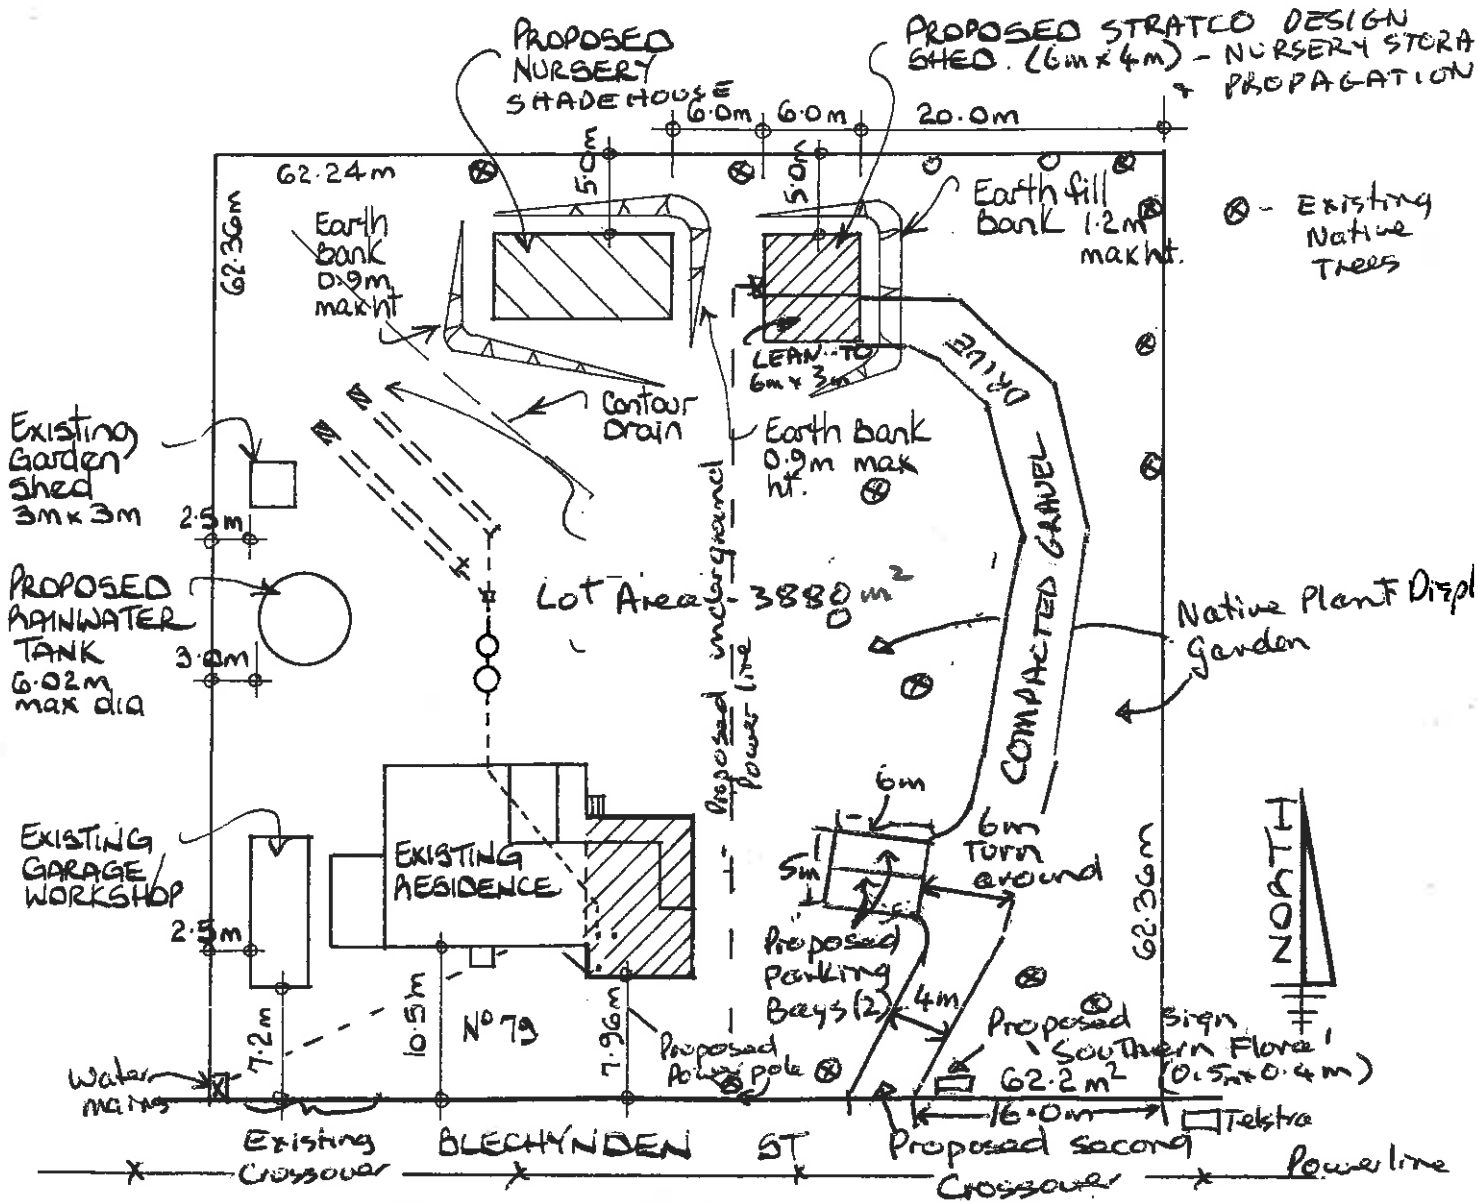 PROPOSED
NURSERY
SHADEHOUSE
PROPOSED STRATCO DESIGN
SHED. (6m x 4m) - NURSERY STORA
+ PROPAGATION
6.0m
6.0m
20.0m
62.24m
5.0m
5.0m
62.36m
Earth
bank
0.9m
max ht
Earth fill
Bank 1.2m
max ht.
⊗ - Existing
Native
Trees
LEAN-TO
6m x 3m
DRIVE
Contour
Drain
Earth Bank
0.9m max
ht.
Existing
Garden
Shed
3m x 3m
2.5m
PROPOSED
RAINWATER
TANK
6.02m
max dia
3.0m
Lot Area - 3880 m²
Proposed underground
Power line
COMPACTED GRAVEL
Native Plant Displ
Garden
EXISTING
GARAGE
WORKSHOP/
2.5m
EXISTING
RESIDENCE
6m
5m
6m
Turn
around
62.36m
NORTH
Proposed
parking
Bays (2)
4m
7.2m
10.5m
Nº 79
7.96m
Proposed
Power pole
Proposed sign
'Southern Flora'
62.2 m² (0.5m x 0.4m)
Water
mains
16.0m
Telstra
Existing
Crossover
BLECHYNDEN ST
Proposed second
Crossover
Powerline